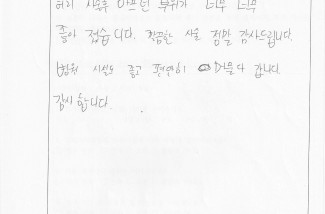 허리 시술후 아프던 부위가 너무 너무
좋아 젔습니다. 깔끔한 시술 정말 감사드립니다.
병원 시설도 좋고 편안히 머물다 갑니다.
감사 합니다.